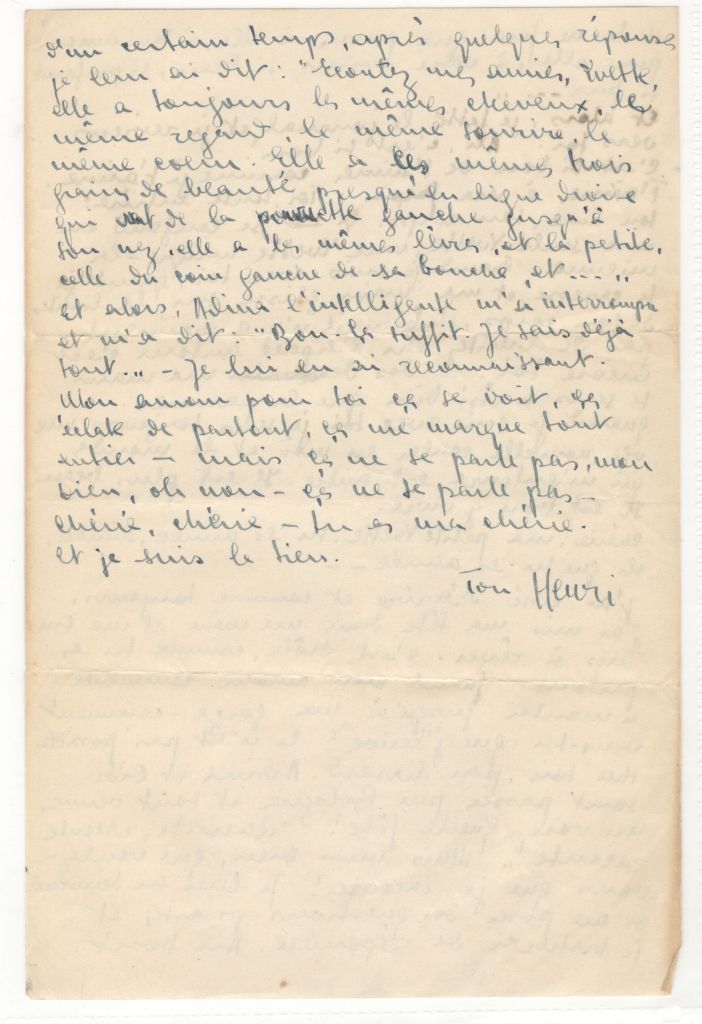 d'un certain temps, après quelques réponses
je leur ai dit : "Ecoutez mes amies, Yvette,
elle a toujours les mêmes cheveux, le
même regard, le même sourire, le
même coeur. Elle a les mêmes trois
grains de beauté, presqu'en ligne droite
qui vont de la pommette gauche jusqu'à
son nez, elle a les mêmes lèvres, et la petite,
celle du coin gauche de sa bouche, et ... "
Et alors, Adina l'intelligente m'a interrompu
et m'a dit : "Bon. Ça suffit. Je sais déjà
tout.." - Je lui en ai reconnaissant.
Mon amour pour toi ça se voit, ça
éclate de partout, ça me marque tout
entier - mais ça ne se parle pas, mon
bien, oh non - ça ne se parle pas -
chérie, chérie - tu es ma chérie.
Et je suis le tien.
Ton Henri